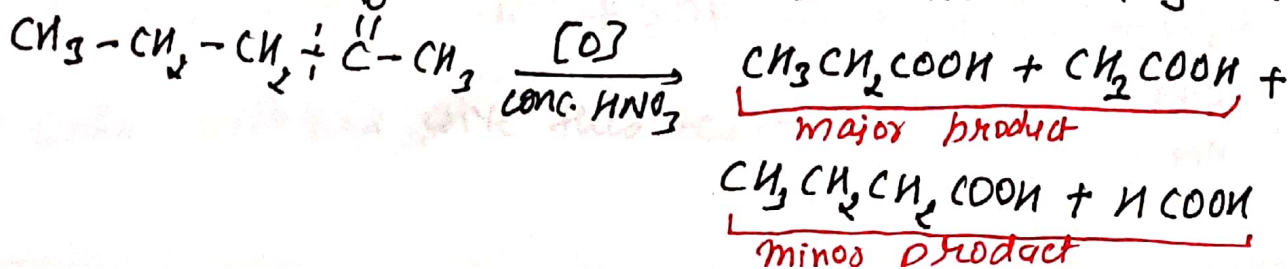 O
CH3-CH2-CH2 ⋮ C-CH3 [O] CH3CH2COOH + CH2COOH +
conc. HNO3 major product
CH3CH2CH2COOH + HCOOH
minor product